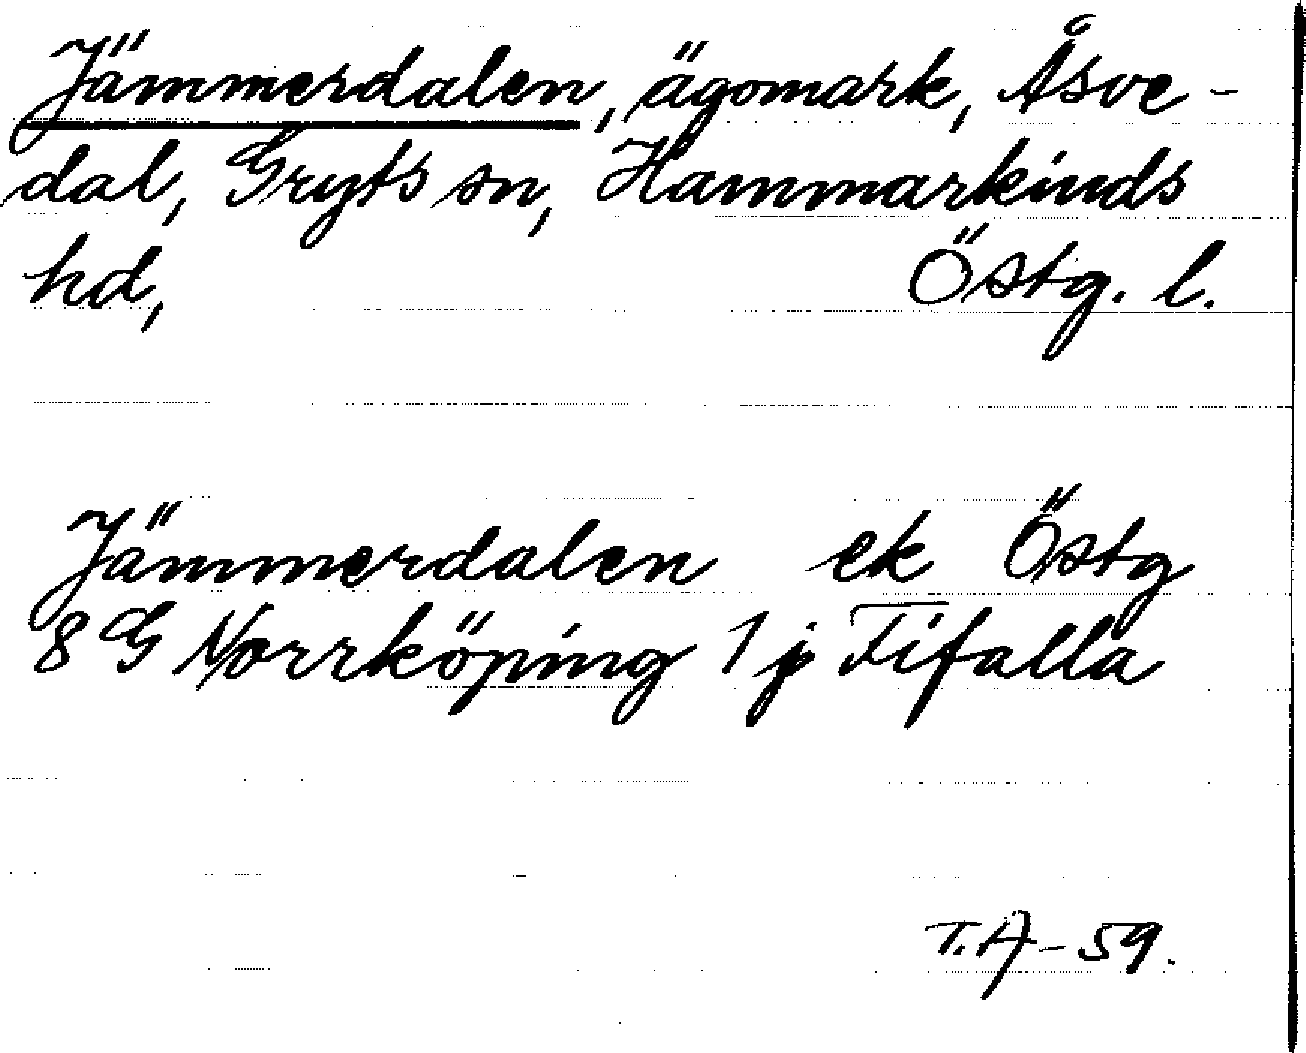 Jämmerdalen, ägomark, Åsve-
dal, Gryts sn, Hammarkinds
hd, Östg. l.
Jämmerdalen ek Östg
8 G Norrköping 1 j Fifalla
T.A-59.